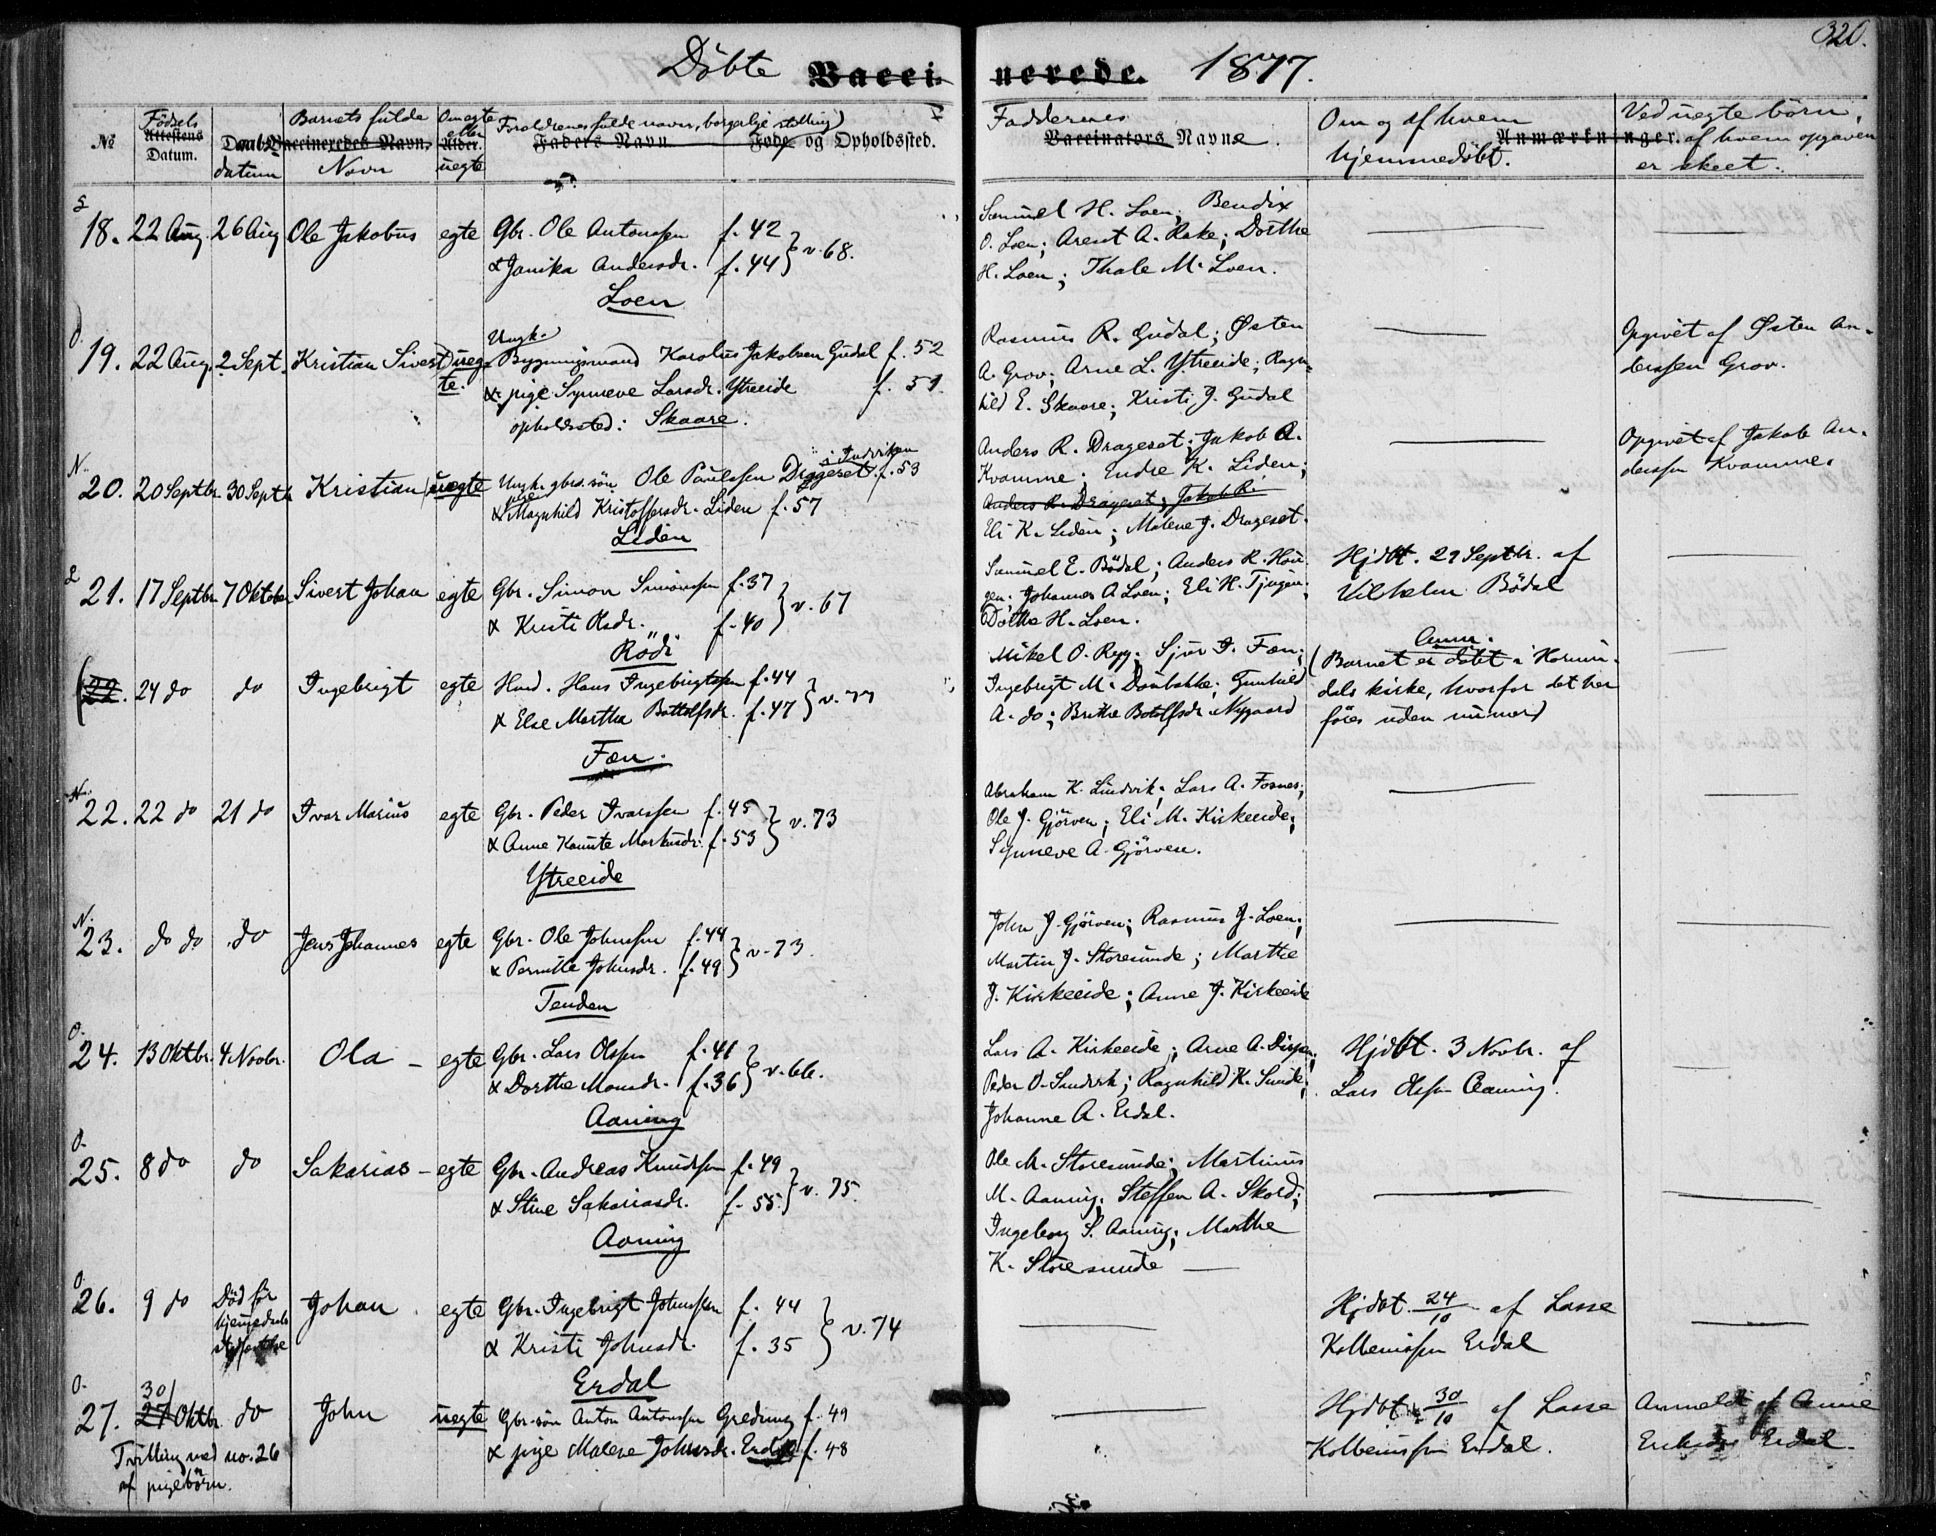 Döbte Vaccinerede. 1877. 320.
№ Fødsels Attestens Datum. Daabs datum Barnets fulde Vaccineredes Navn. Navn Om egte eller Alder. uegte Forældrenes fulde navn, borgerlige stilling Faders Navn. Føde og Opholdssted. Faddernes Vaccinators Navne. Om og af hvem hjemmedöbt. Anmærkninger. Ved uegte börn, af hvem opgaven er skeet.
18. 22 Aug. 26 Aug Ole Jakobus egte Gbr. Ole Antonssen f. 42
& Janika Andersdr. f. 44 } v. 68.
Loen
Samuel H. Loen; Bendix
O. Loen; Arent A. Rake; Dorthe
H. Loen; Thale M. Loen.
19. 22 Aug. 2 Sept. Kristian Sivert uegte. Ungk.
Bygningsmand Karolus Jakobsen Gudal f. 52
& pige Synneve Larsdr. Ytreeide f. 51.
opholdssted: Skaare.
Rasmus R. Gudal; Østen
A. Grov; Arne L. Ytreeide; Ragn-
hild E. Skaare; Kristi J. Gudal
Opgivet af Østen An-
derssen Grov.
20. 20 Septbr 30 Septb Kristian uegte Ungk. gbrd. sön Ole Paulssen Diggeset i Indviken f. 53
& Magnhild Kristoffersdr. Liden f. 57
Liden
Anders R. Drageset; Jakob A.
Kvamme; Endre K. Liden;
Anders R. Drageset; Jakob R.
Eli K. Liden; Malene J. Drageset.
Opgivet af Jakob An-
derssen Kvamme.
21. 17 Septbr 7 Oktober Sivert Johan egte Gbr. Simon Simonssen f. 37
& Kristi Olsdr. f. 40 } v. 67
Rödi
Samuel E. Bödal; Anders R. Hau-
gen; Johannes A Loen; Eli H. Tjugen;
Dorthe H. Loen.
Hjdbt. 29 Septbr. af
Vilhelm Bödal
22. 24 do do Ingebrigt egte Husd. Hans Ingebrigtssen f. 44
& Else Martha Bottolfsdr. f. 47 } v. 77
Fæn.
Mikel O. Ryg; Sjur I. Fæn;
Ingebrigt M. Daubakke; Gunhild
A. do; Brithe Botolfsdr. Nygaard
Anm.
(Barnet er döbt i Hornin-
dals kirke, hvorfor det her
föres uden numer)
22. 22 do 21 do Ivar Marius egte Gbr. Peder Ivarssen f. 45
& Anne Kamite Markusdr. f. 53 } v. 73
Ytreeide
Abraham K. Lindvik; Lars A. Fosnes;
Ole J. Gjörven; Eli M. Kirkeeide;
Synneve A. Gjörven.
23. do do do Jens Johannes egte Gbr. Ole Johnssen f. 44
& Pernille Johnsdr. f. 49 } v. 73.
Tenden
John J. Gjörven; Rasmus J. Loen;
Martin J. Storesunde; Marthe
J. Kirkeeide; Anne J. Kirkeeide
24. 13 Oktbr. 4 Novbr. Ola egte Gbr. Lars Olssen f. 41
& Dorthe Monsdr. f. 36 } v. 66.
Aaning
Lars A. Kirkeeide; Arne A. Dispen;
Peder O. Sundvik; Ragnhild K. Sunde;
Johanne A. Erdal.
Hjdbt. 3 Novbr. af
Lars Olssen Aaning.
25. 8 do do Sakarias egte Gbr. Andreas Knudssen f. 49
& Stine Sakariasdr. f. 55. } v. 75.
Aaning
Ole M. Storesunde; Martinus
M. Aaning; Steffen A. Skord;
Ingeborg S. Aaning; Marthe
K. Storesunde
26. 9 do Död för
Johan egte Gbr. Ingebrigt Johnssen f. 44
& Kristi Johnsdr. f. 35 } v. 74
Erdal
Hjdbt. 24/10 af Lasse
Kolbeinssen Erdal
27. 30/27 Oktbr. do John uegte Gbr. sön Anton Antonssen Gredung f. 49
& pige Malene Johnsdr. Erdal f. 48
Tvilling med no. 26
af pigebörn.
Hjdbt. 30/10 af Lasse
Kolbeinssen Erdal.
Anmeldt af Anne
Erdal.